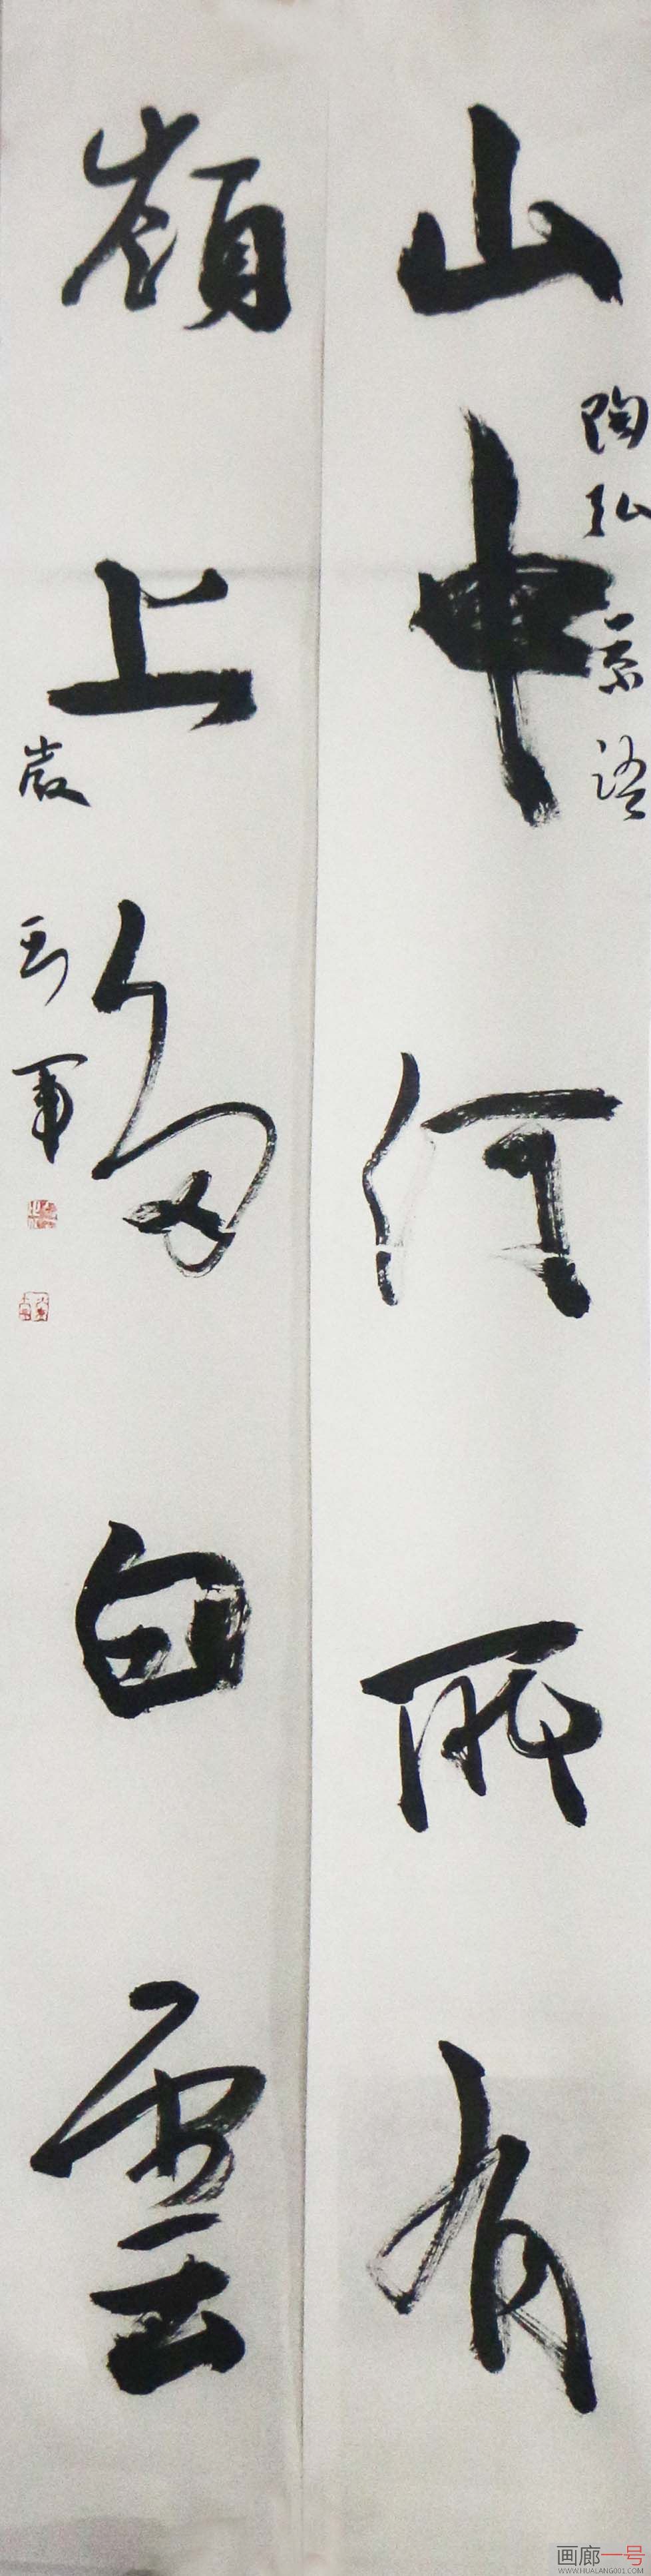 山中何所有
陶弘景語
嶺上多白雲
画廊一号
WWW.HUALANG001.COM